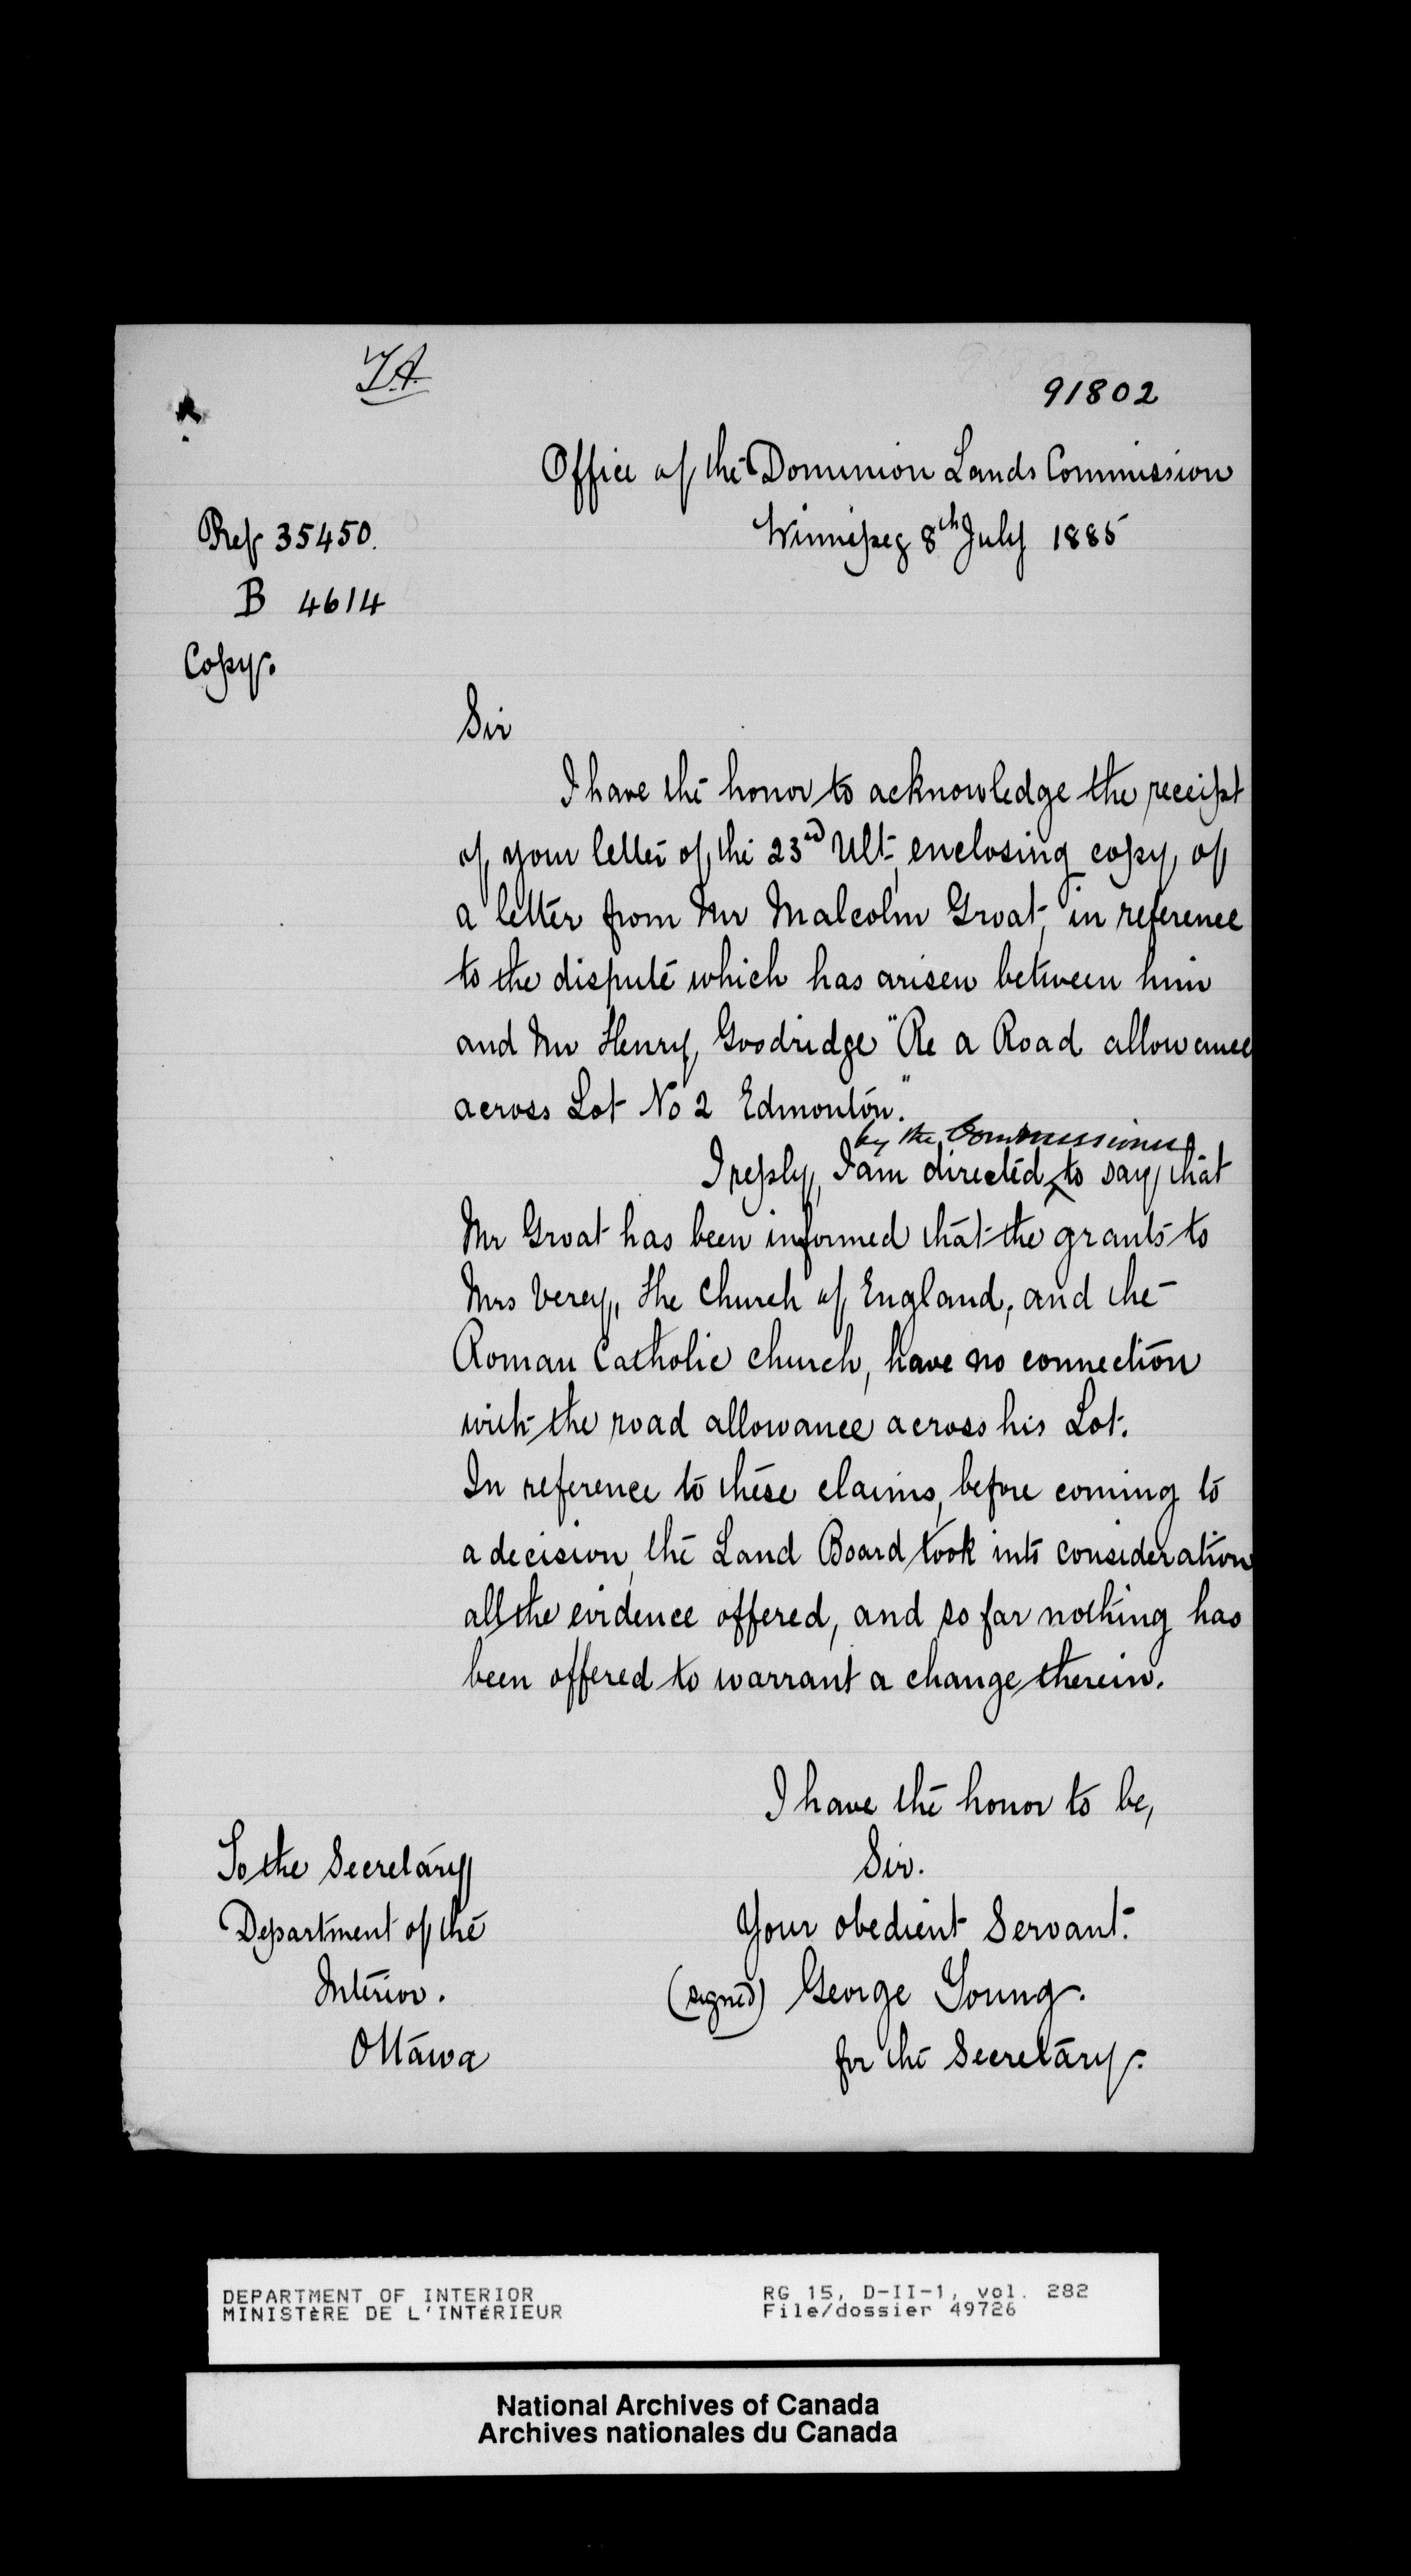 T.A.
91802
Office of the Dominion Lands Commission
Ref 35450.
Winnipeg 8th July 1885
B 4614
Copy.
Sir
I have the honor to acknowledge the receipt
of your letter of the 23rd Ult, enclosing copy of
a letter from Mr Malcolm Groat, in reference
to the dispute which has arisen between him
and Mr Henry Goodridge "Re a Road allowance
across Lot No 2 Edmonton."
by the Commissioner
I reply, I am directed ^ to say that
Mr Groat has been informed that the grants to
Mrs Verey, the Church of England, and the
Roman Catholic church, have no connection
with the road allowance across his Lot.
In reference to these claims, before coming to
a decision, the Land Board took into consideration
all the evidence offered, and so far nothing has
been offered to warrant a change therein.
I have the honor to be,
Sir.
Your obedient Servant.
(signed) George Young.
for the Secretary.
To the Secretary
Department of the
Interior.
Ottawa
DEPARTMENT OF INTERIOR
MINISTÈRE DE L'INTÉRIEUR
RG 15, D-II-1, vol. 282
File/dossier 49726
National Archives of Canada
Archives nationales du Canada